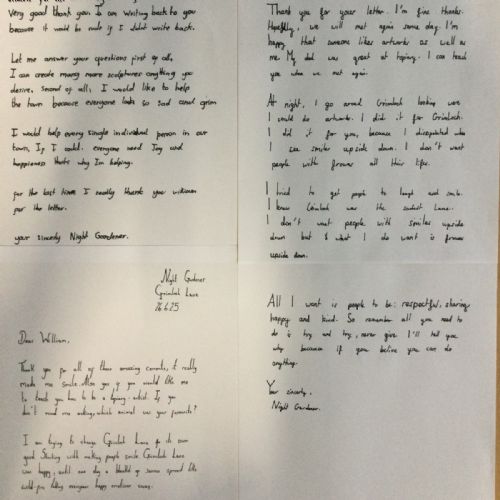 Very good thank you. I am writing back to you
because it would be rude if I didnt write back.
Let me answer your questions first of all,
I can create many more sculptures anything you
desire, Second of all, I would like to help
the town because everyone looks so sad and grim
I would help every single individual person in our
town, If I could. everyone need Joy and
happiness thats why Im helping.
for the last time I really thank you
for the letter.
your sincerly Night Gardener.
Thank you for your letter. I'm fine thanks.
Hopfully, we will met again some day. I'm
happy that someone likes artworks as well as
me. My dad was great at topiary. I can teach
you when we met again.
At night, I go around Grimloch looking were
I could do artworks. I did it for Grimloch.
I did it for you, because I
I see smiles upside down. I don't want
people with frowns all their life.
I tried to get people to laugh and smile.
I knew Grimloch was the sadest Lane.
I don't want people with smiles upside
down but what I do want is frowns
upside down.
Night Gardener
Grimloch Lane
26.6.25
Dear William,
Thank you for all of those amazing coments, it really
made me smile. you if you would like me
to teach you how to be a artist. If you
don't mind me asking, which animal was your favourite?
I am trying to change Grimloch Lane for its own
good. Starting with making people smile Grimloch Lane
was happy, until one day a of sorrow spread like
wild-fire taking everyones happy emotions away.
All I want is people to be: respectful, sharing
happy and kind. So remember all you need to
do is try and try, never give I'll tell you
why because if you belive you can do
anything.
Your sincerly,
Night Gardener.